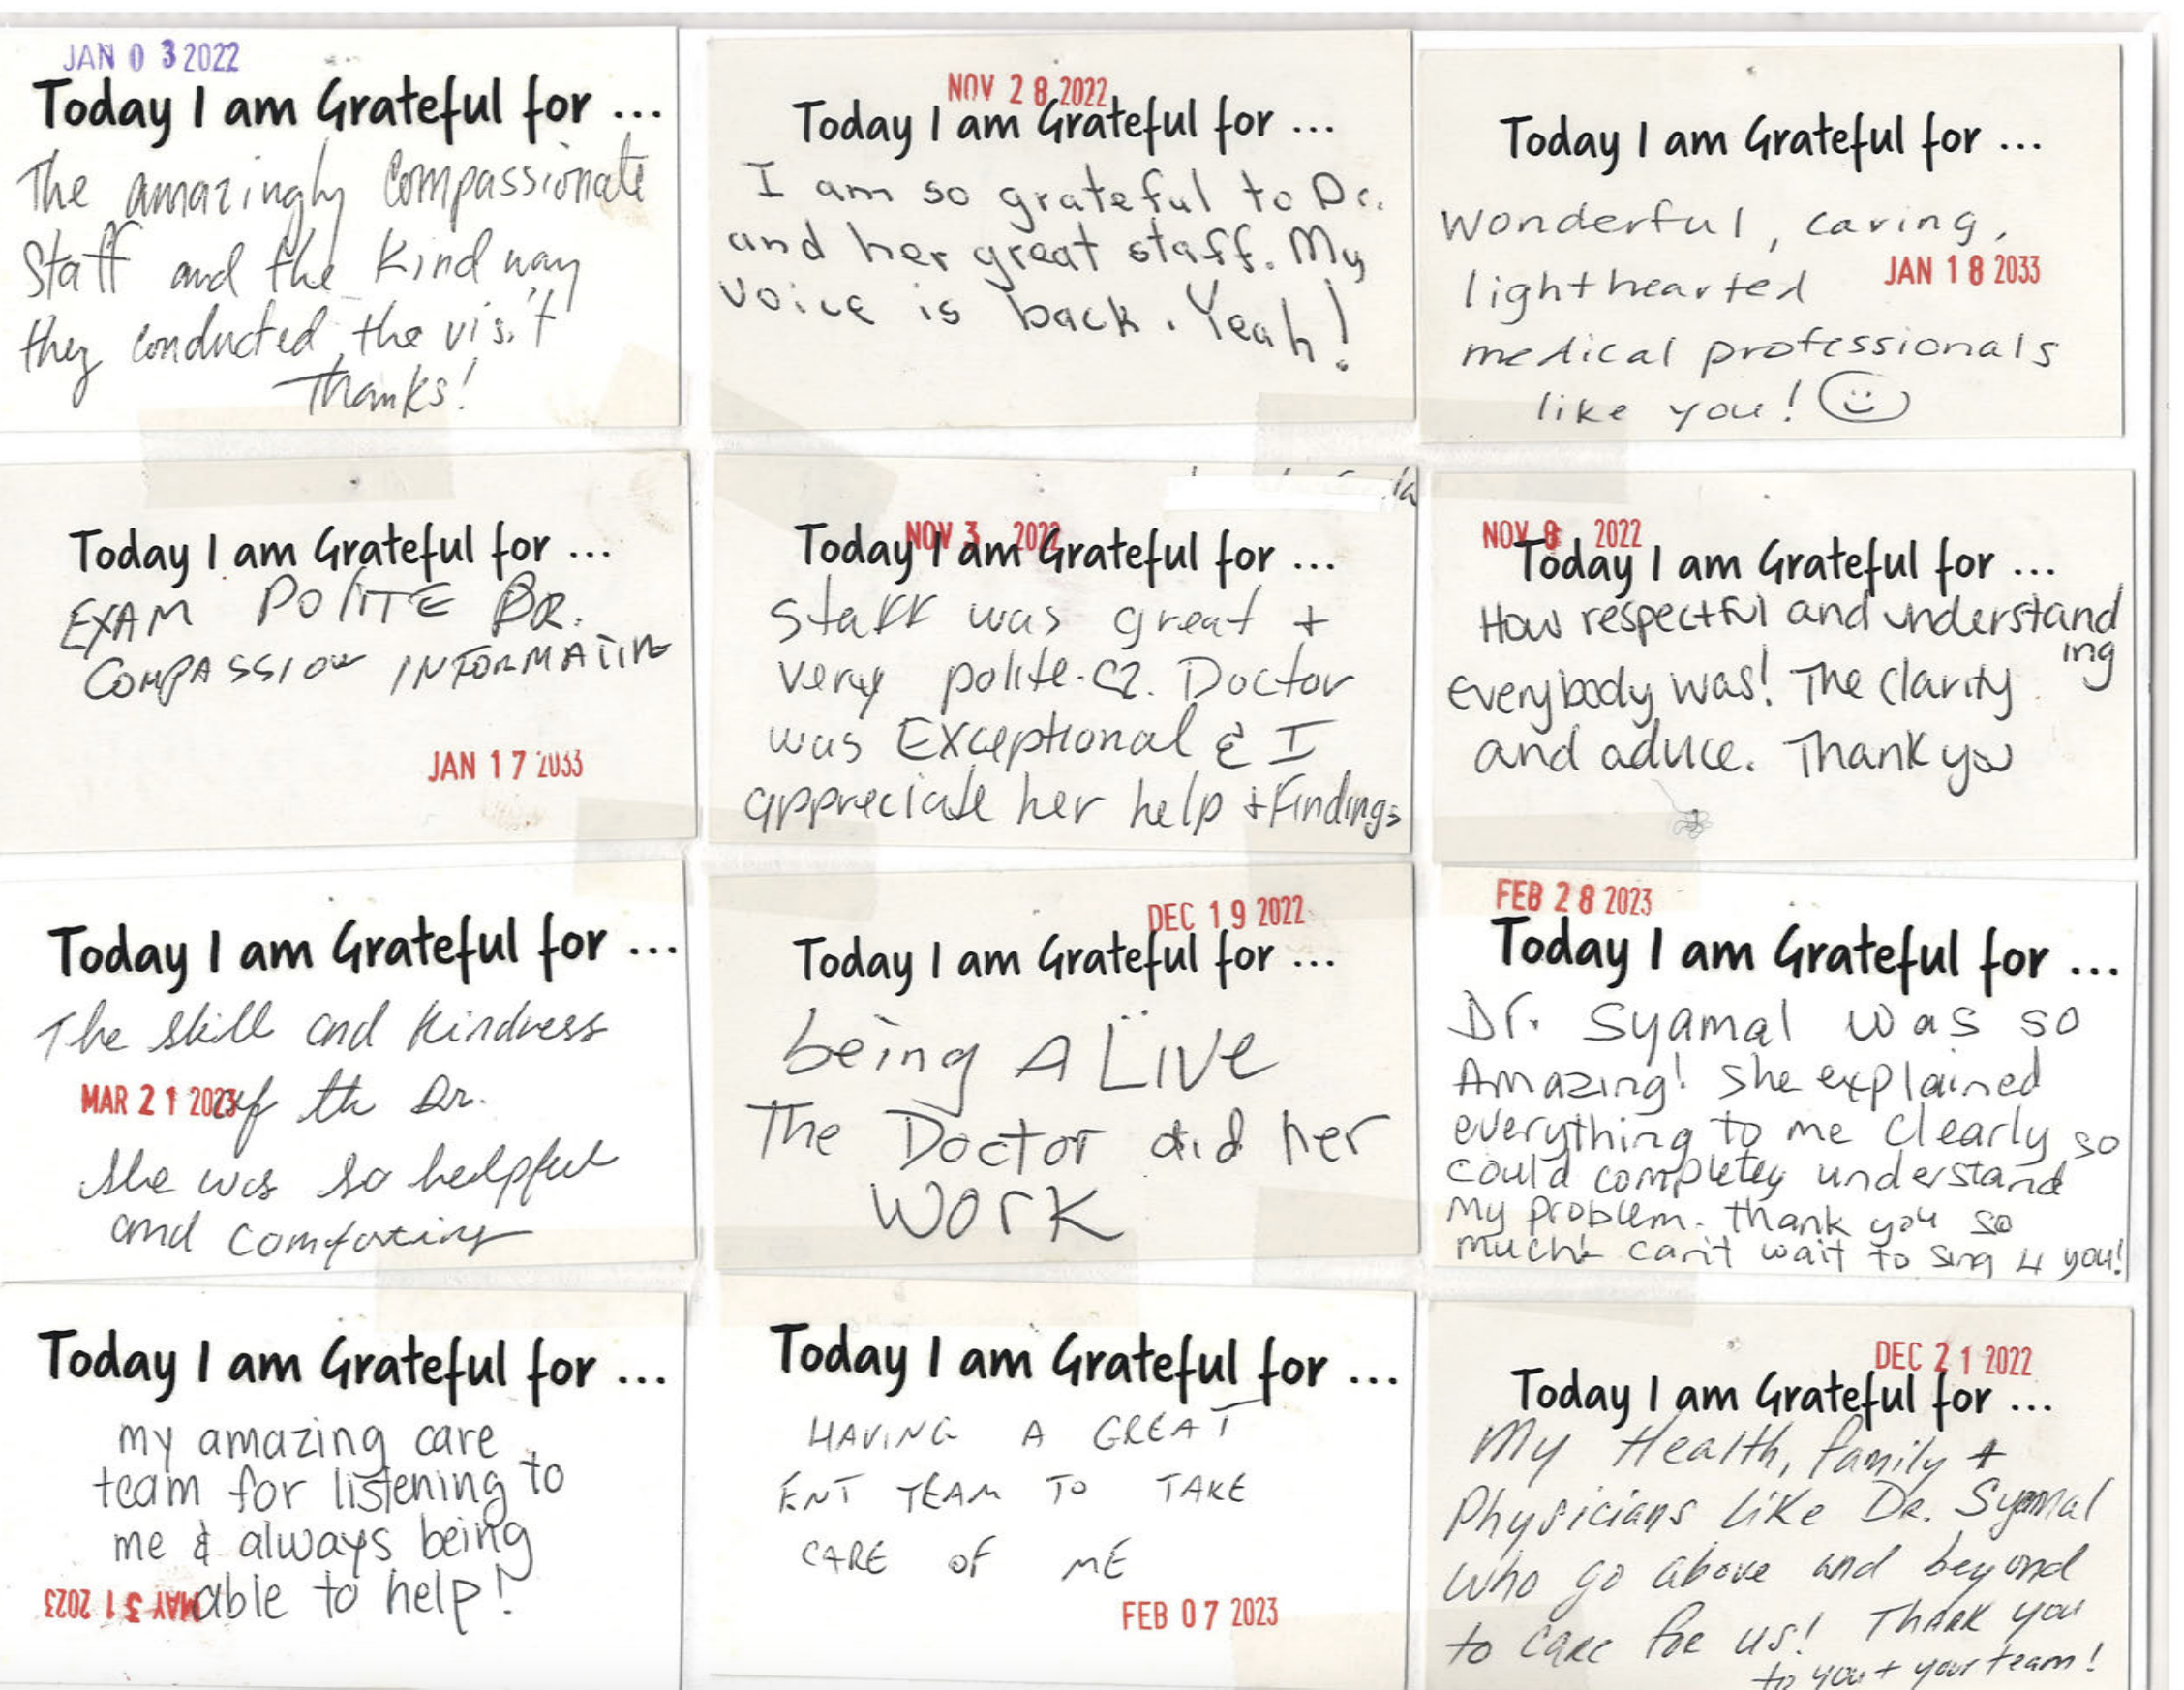 JAN 0 3 2022
Today I am Grateful for ...
The amazingly compassionate
staff and the kind way
they conducted the visit
Thanks!
NOV 2 8 2022
Today I am Grateful for ...
I am so grateful to Dr.
and her great staff. My
voice is back. Yeah!
Today I am Grateful for ...
Wonderful, caring,
lighthearted
JAN 1 8 2033
medical professionals
like you!
Today I am Grateful for ...
EXAM POLITE DR.
COMPASSION INFORMATIVE
JAN 1 7 2033
NOV 3 2022
Today I am Grateful for ...
Staff was great +
very polite. Doctor
was Exceptional & I
appreciate her help + Findings
NOV 8 2022
Today I am Grateful for ...
How respectful and understand
ing
everybody was! The clarity
and advice. Thank you
Today I am Grateful for ...
The skill and kindness
MAR 2 1 2023
of the Dr.
She was so helpful
and comforting
DEC 1 9 2022
Today I am Grateful for ...
being ALIVE
The Doctor did her
WORK
FEB 2 8 2023
Today I am Grateful for ...
Dr. Syamal was so
Amazing! She explained
everything to me clearly so
could completey understand
my problem. Thank you so
much! can't wait to sing 4 you!
Today I am Grateful for ...
my amazing care
team for listening to
me & always being
able to help!
MAY 3 1 2023
Today I am Grateful for ...
HAVING A GREAT
ENT TEAM TO TAKE
CARE OF ME
FEB 0 7 2023
DEC 2 1 2022
Today I am Grateful for ...
My Health, family +
Physicians like Dr. Syamal
who go above and beyond
to care for us! Thank you
to you + your team!